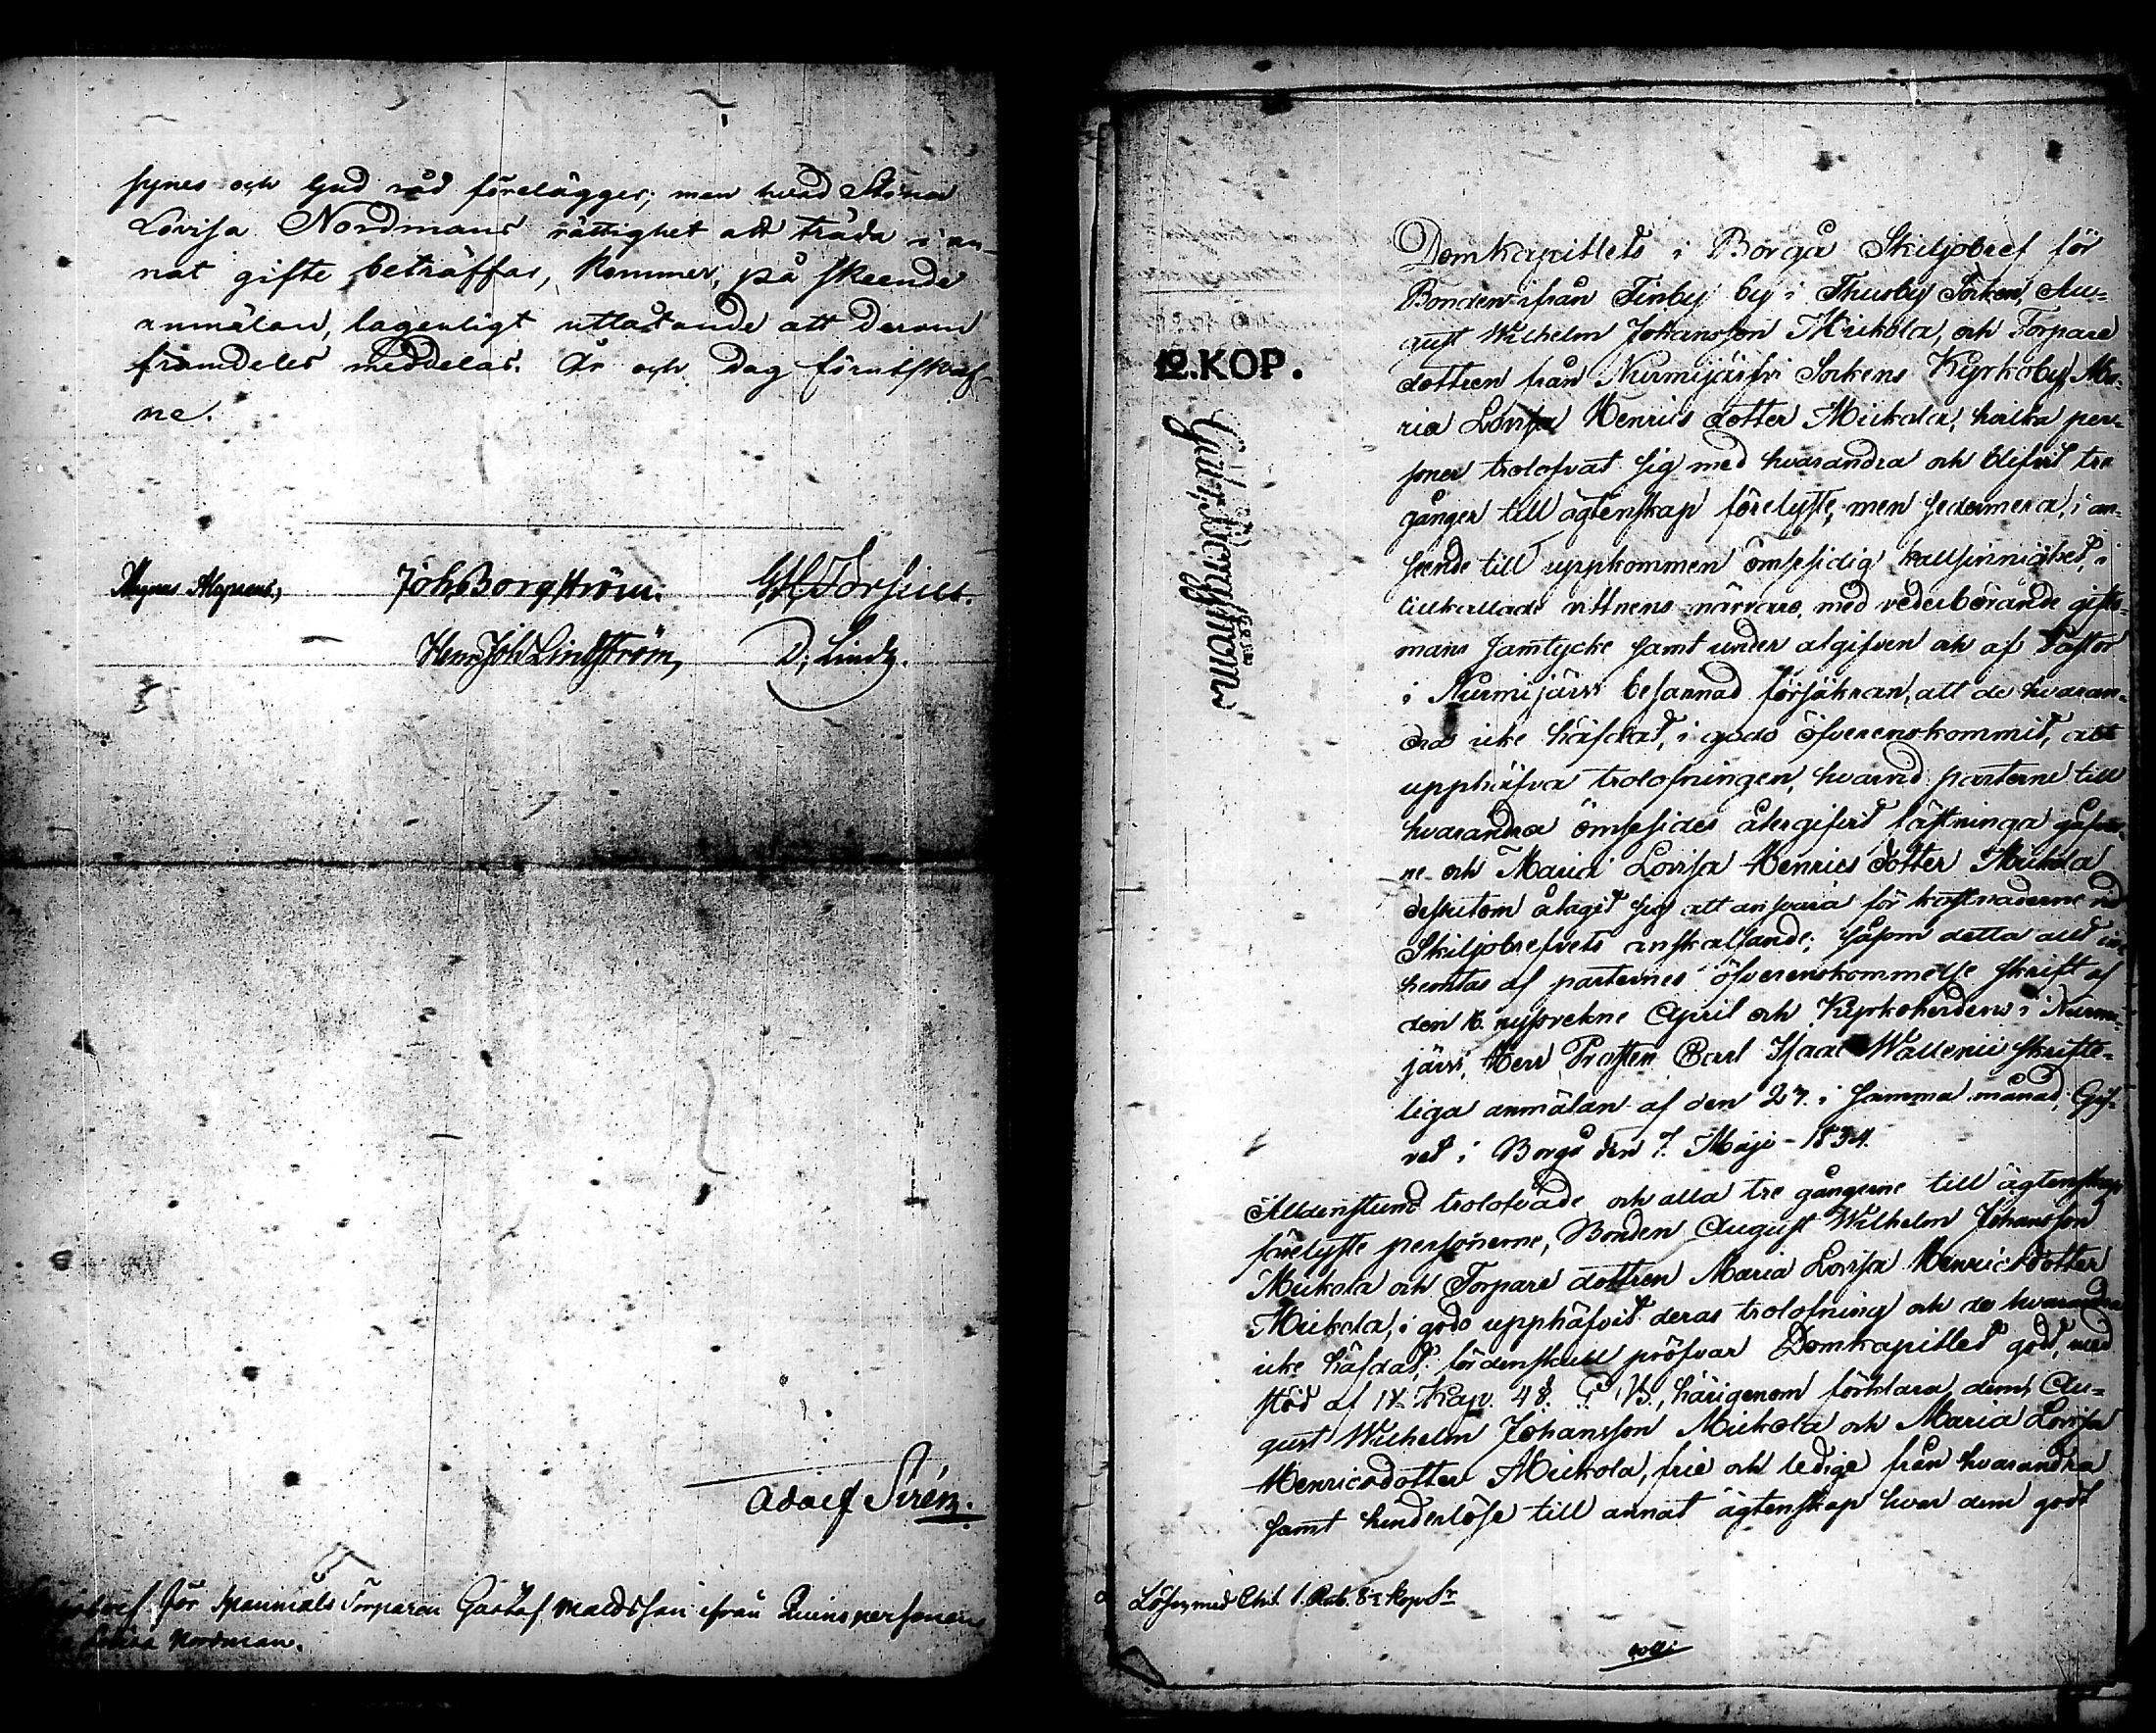 synes och Gud råd förelägger; men hvad Stina
Lovisa Nordmans rättighet att träda i an-
nat gifte beträffar, kommer, på skeende
anmälan, lagenligt utlåtande att derom
framdeles meddelas. År och Dag förutskref-
ne.
Magnus Alopaeus,
Joh. Borgström.
Henr. Joh. Lindström,
D. Lindh.
Adolf Sirén.
för Torparen Gustaf ifrån Qvinspersonen
Nordman.
12. KOP.
Domkapitlets i Borgå Skiljobref för
Bonden ifrån Finby by i Thusby Socken, Au-
gust Wilhelm Johansson Mickola, och Torpare
dottren från Nurmijärfvi Sockens Kyrkoby, Ma-
ria Lovisa Henrics dotter Mickola, hvilka per-
soner trolofvat sig med hvarandra och blifvit tre
gånger till ägtenskap förelyste, men sedermera, i an-
seende till uppkommen ömsesidig kallsinnighet, i
tillkallade vittnens närvaro, med vederbörande gifto-
mans samtycke samt under afgifven och af Pastor
i Nurmijärvi besannad försäkran, att de hvaran-
dra icke häfdat, i godo öfverenskommit, att
upphäfva trolofningen, hvarvid parterne till
hvarandra ömsesides återgifvit fästninga gåfvor-
ne och Maria Lovisa Henrics dotter Mickola
dessutom åtagit sig att ansvara för kostnaderne vid
Skiljobrefvets anskaffande; såsom detta allt in-
hemtas af parternes öfverenskommelse skrift af
den 16. nysvekne April och Kyrkoherdens i Nurmi-
järvi, Herr Prosten Carl Isaac Wallenii skrifte-
liga anmälan af den 27. i samma månad; Gif-
vet i Borgå den 7. Maji 1834.
Alldenstund trolofvade och alla tre gångerne till ägtenskap
förelyste personerne, Bonden August Wilhelm Johansson
Mickola och Torpare dottren Maria Lovisa Henricsdotter
Mickola, i godo upphäfvit deras trolofning och de hvarandra
icke häfdat; fördenskull pröfvar Domkapitlet godt, med
stöd af Kap. 4 §. G. B., härigenom förklara dem, Au-
gust Wilhelm Johansson Mickola och Maria Lovisa
Henricsdotter Mickola, frie och ledige från hvarandra
samt hinderlöse till annat ägtenskap hvar dem godt
Lösen, med Chit. 1. Rub. Kop. Sr